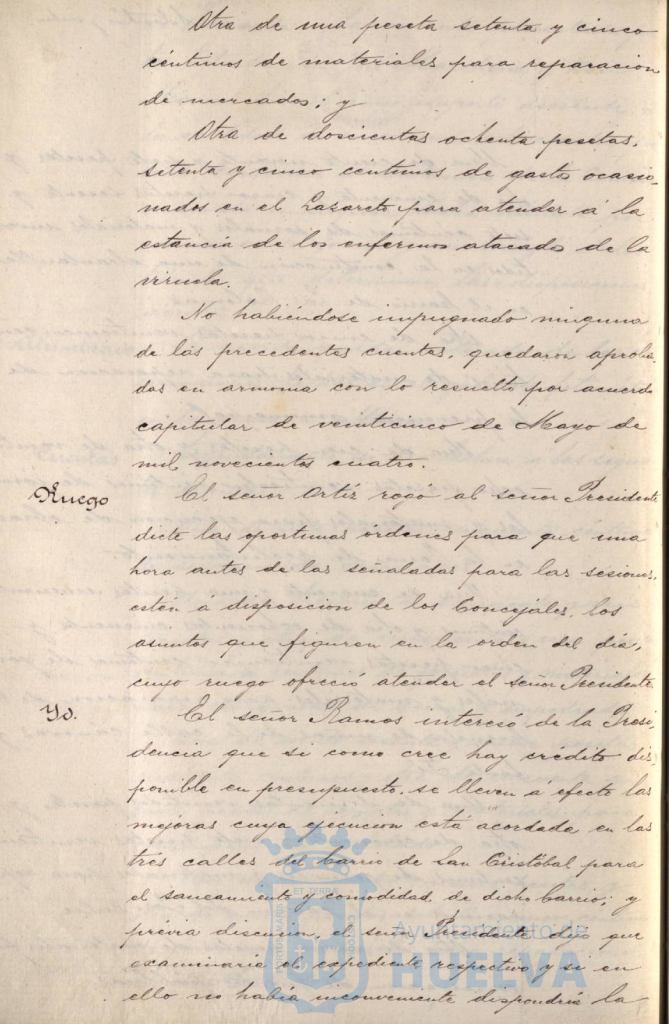 Otra de una peseta setenta y cinco
céntimos de materiales para reparacion
de mercados; y
Otra de doscientas ochenta pesetas,
setenta y cinco céntimos de gastos ocasio-
nados en el Lazareto para atender á la
estancia de los enfermos atacados de la
viruela.
No habiéndose impugnado ninguna
de las precedentes cuentas, quedaron aproba-
das en armonía con lo resuelto por acuerdo
capitular de veinticinco de Mayo de
mil novecientos cuatro.
Ruego
El señor Ortíz rogó al señor Presidente
dicte las oportunas órdenes para que una
hora antes de las señaladas para las sesiones,
estén á disposicion de los Concejales, los
asuntos que figuren en la orden del dia,
cuyo ruego ofreció atender el señor Presidente
Yd.
El señor Ramos interesó de la Presi-
dencia que si como cree hay crédito dis-
ponible en presupuesto, se lleven á efecto las
mejoras cuya ejecucion está acordada en las
trés calles del barrio de San Cristóbal para
el saneamiento y comodidad de dicho barrio; y
prévia discusion, el señor Presidente dijo que
examinaria el expediente respectivo y si en
ello no habia inconveniente dispondria la
Ayuntamiento de
HUELVA